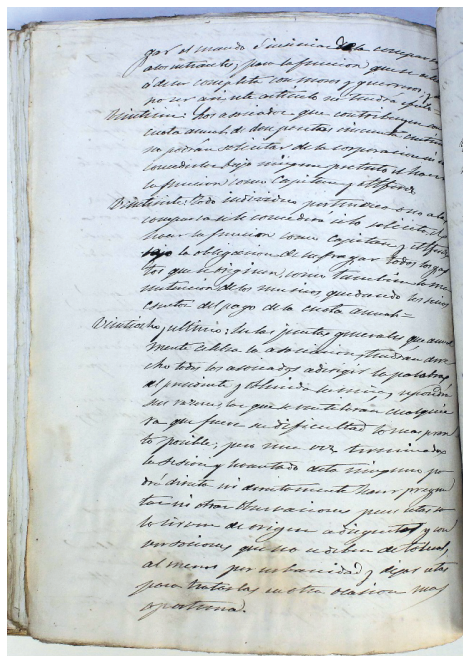 gar el mando é insignias de la comparsa
á los entrantes; para la funcion que se ha
á de ser completa con moros y
no ser así este artículo no tendrá efecto
Veintiseis: Los asociados que contribuyen con
cuota anual de dos pesetas cincuenta centimos
no podrán solicitar de la corporacion ni
concederles bajo ningun pretesto el hacer
la funcion como Capitan y Alferez
Veintisiete: Todo individuo pertenezca ó no á la
comparsa se le concederá si lo solicita el
hacer la funcion como capitan y alferez
bajo la obligacion de sufragar todos los gas
tos que se originen, como tambien la ma
nutencion de los musicos, quedando los
del pago de la cuota anual=
Veintiocho y ultimo: En las juntas generales que anual
mente celebra la asociacion, tendran dere
cho todos los asociados á dirigir la palabra
al presidente y obtenida la venia,
sus razones, las que se ventilarán cualquie
ra que fuere su dificultad lo mas pron
to posible; pero una vez terminada
la sesion y levantada acta ninguno po
drá directa ni indirectamente hacer pregun
tas ni otras observaciones pues estas so
lo sirven de origen á disgustos y con
versaciones que no se deben de tolerar,
al menos por urbanidad y dejar estas
para tratarlas en otra ocasion mas
oportuna.